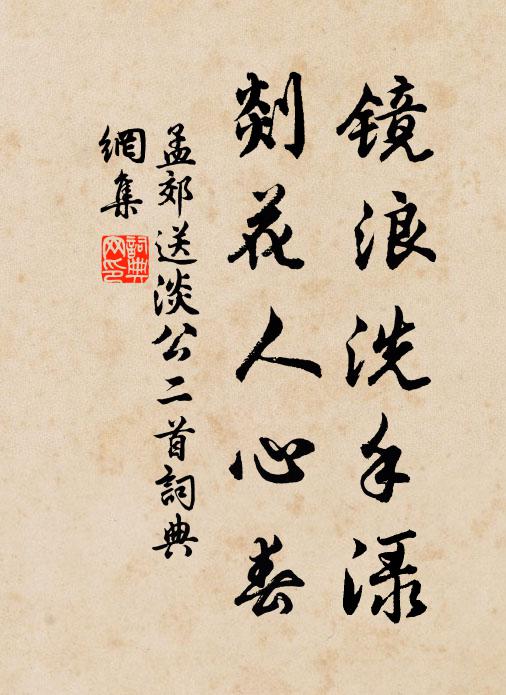 镜浪洗手渌
剡花人心春
孟郊送淡公二首詞典
網集
詞典
网印